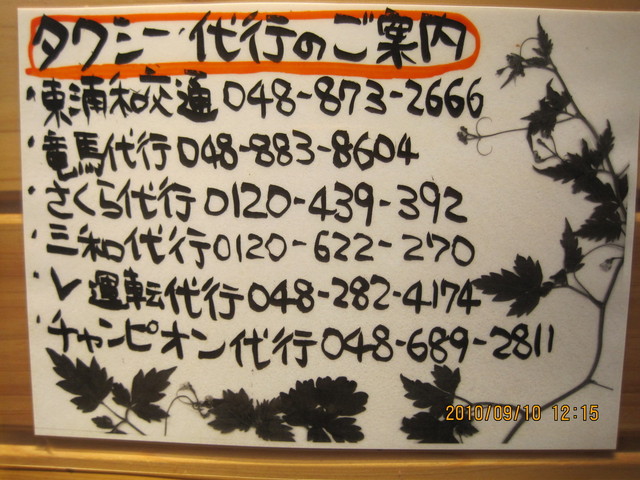 タクシー 代行のご案内
・東浦和交通 048-873-2666
・竜馬代行 048-883-8604
・さくら代行 0120-439-392
・三和代行 0120-622-270
・レ 運転代行 048-282-4174
・チャンピオン代行 048-689-2811
2010/09/10 12:15